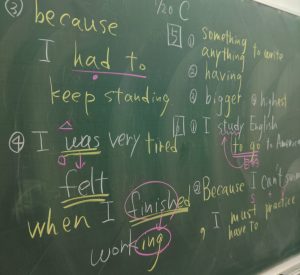 ③ because
I had to
keep standing
④ I was very tired
felt
when I finished
working
1/20 C
5
① something to write
anything
② having
③ bigger ④ highest
① I study English
to go to America
② Because I can't swim
, I must practice
have to